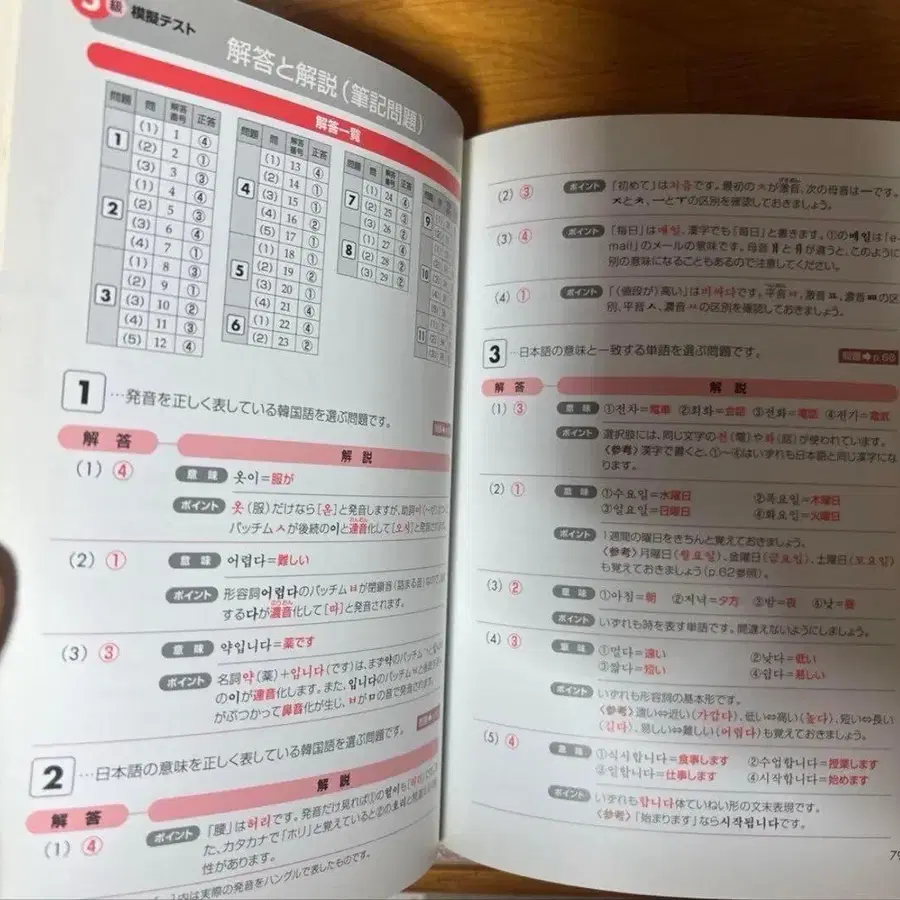 5級 模擬テスト
解答と解説(筆記問題)
解答一覧
問題 問 解答番号 正答
1 (1) 1 ④
(2) 2 ①
(3) 3 ③
2 (1) 4 ④
(2) 5 ③
(3) 6 ④
(4) 7 ①
3 (1) 8 ③
(2) 9 ①
(3) 10 ②
(4) 11 ③
(5) 12 ④
問題 問 解答番号 正答
4 (1) 13 ④
(2) 14 ①
(3) 15 ①
(4) 16 ②
(5) 17 ①
5 (1) 18 ②
(2) 19 ②
(3) 20 ①
(4) 21 ④
6 (1) 22 ④
(2) 23 ②
問題 問 解答番号 正答
7 (1) 24 ④
(2) 25 ④
(3) 26 ②
8 (1) 27 ④
(2) 28 ②
(3) 29 ②
9
10
11
1 …発音を正しく表している韓国語を選ぶ問題です。
解答 解説
(1) ④ 意味 옷이=服が
ポイント 옷(服)だけなら[옫]と発音しますが、助詞이
パッチムㅅが後続の이と連音化して[오시]と発音
(2) ① 意味 어렵다=難しい
ポイント 形容詞어렵다のパッチムㅂが閉鎖音(詰まる音)
するだが濃音化して[따]と発音されます。
(3) ③ 意味 약입니다=薬です
ポイント 名詞약(薬)+입니다(です)は、まず약のパッチム
の이が連音化します。また、입니다のパッチムㅂと
がぶつかって鼻音化が生じ、ㅂがㅁの音で発音され
2 …日本語の意味を正しく表している韓国語を選ぶ問題です。
解答 解説
(1) ④ ポイント 「腰」は허리です。発音だけ見れば
た、カタカナで「ホリ」と覚えていると②の호리と
性があります。
内は実際の発音をハングルで表したものです。
(2) ③ ポイント 「初めて」は처음です。最初のㅊが激音、次の母音はㅡです。
ㅈとㅊ、ㅡとㅜの区別を確認しておきましょう。
(3) ④ ポイント 「毎日」は매일、漢字でも「毎日」と書きます。①の메일は「e-
mail」のメールの意味です。母音ㅐとㅔが違うと、このように
別の意味になることもあるので注意してください。
(4) ① ポイント 「(値段が)高い」は비싸다です。平音ㅂ、激音ㅍ、濃音ㅃの区
別、平音ㅅ、濃音ㅆの区別を確認しておきましょう。
3 …日本語の意味と一致する単語を選ぶ問題です。
問題➡p.68
解答 解説
(1) ③ 意味 ①전차=電車 ②회화=会話 ③전화=電話 ④전기=電気
ポイント 選択肢には、同じ文字の전(電)や화(話)が使われています。
〈参考〉漢字で書くと、①〜④はいずれも日本語と同じ漢字にな
ります。
(2) ① 意味 ①수요일=水曜日 ②목요일=木曜日
③일요일=日曜日 ④화요일=火曜日
ポイント 1週間の曜日をきちんと覚えておきましょう。
〈参考〉月曜日(월요일)、金曜日(금요일)、土曜日(토요일)
も覚えておきましょう(p.62参照)。
(3) ② 意味 ①아침=朝 ②저녁=夕方 ③밤=夜 ④낮=昼
ポイント いずれも時を表す単語です。間違えないようにしましょう。
(4) ③ 意味 ①멀다=遠い ②낮다=低い
③짧다=短い ④쉽다=易しい
ポイント いずれも形容詞の基本形です。
〈参考〉遠い⇔近い(가깝다)、低い⇔高い(높다)、短い⇔長い
(길다)、易しい⇔難しい(어렵다)も覚えておきましょう。
(5) ④ 意味 ①식사합니다=食事します ②수업합니다=授業します
③일합니다=仕事します ④시작합니다=始めます
ポイント いずれも합니다体ていねい形の文末表現です。
〈参考〉「始まります」なら시작됩니다です。
79